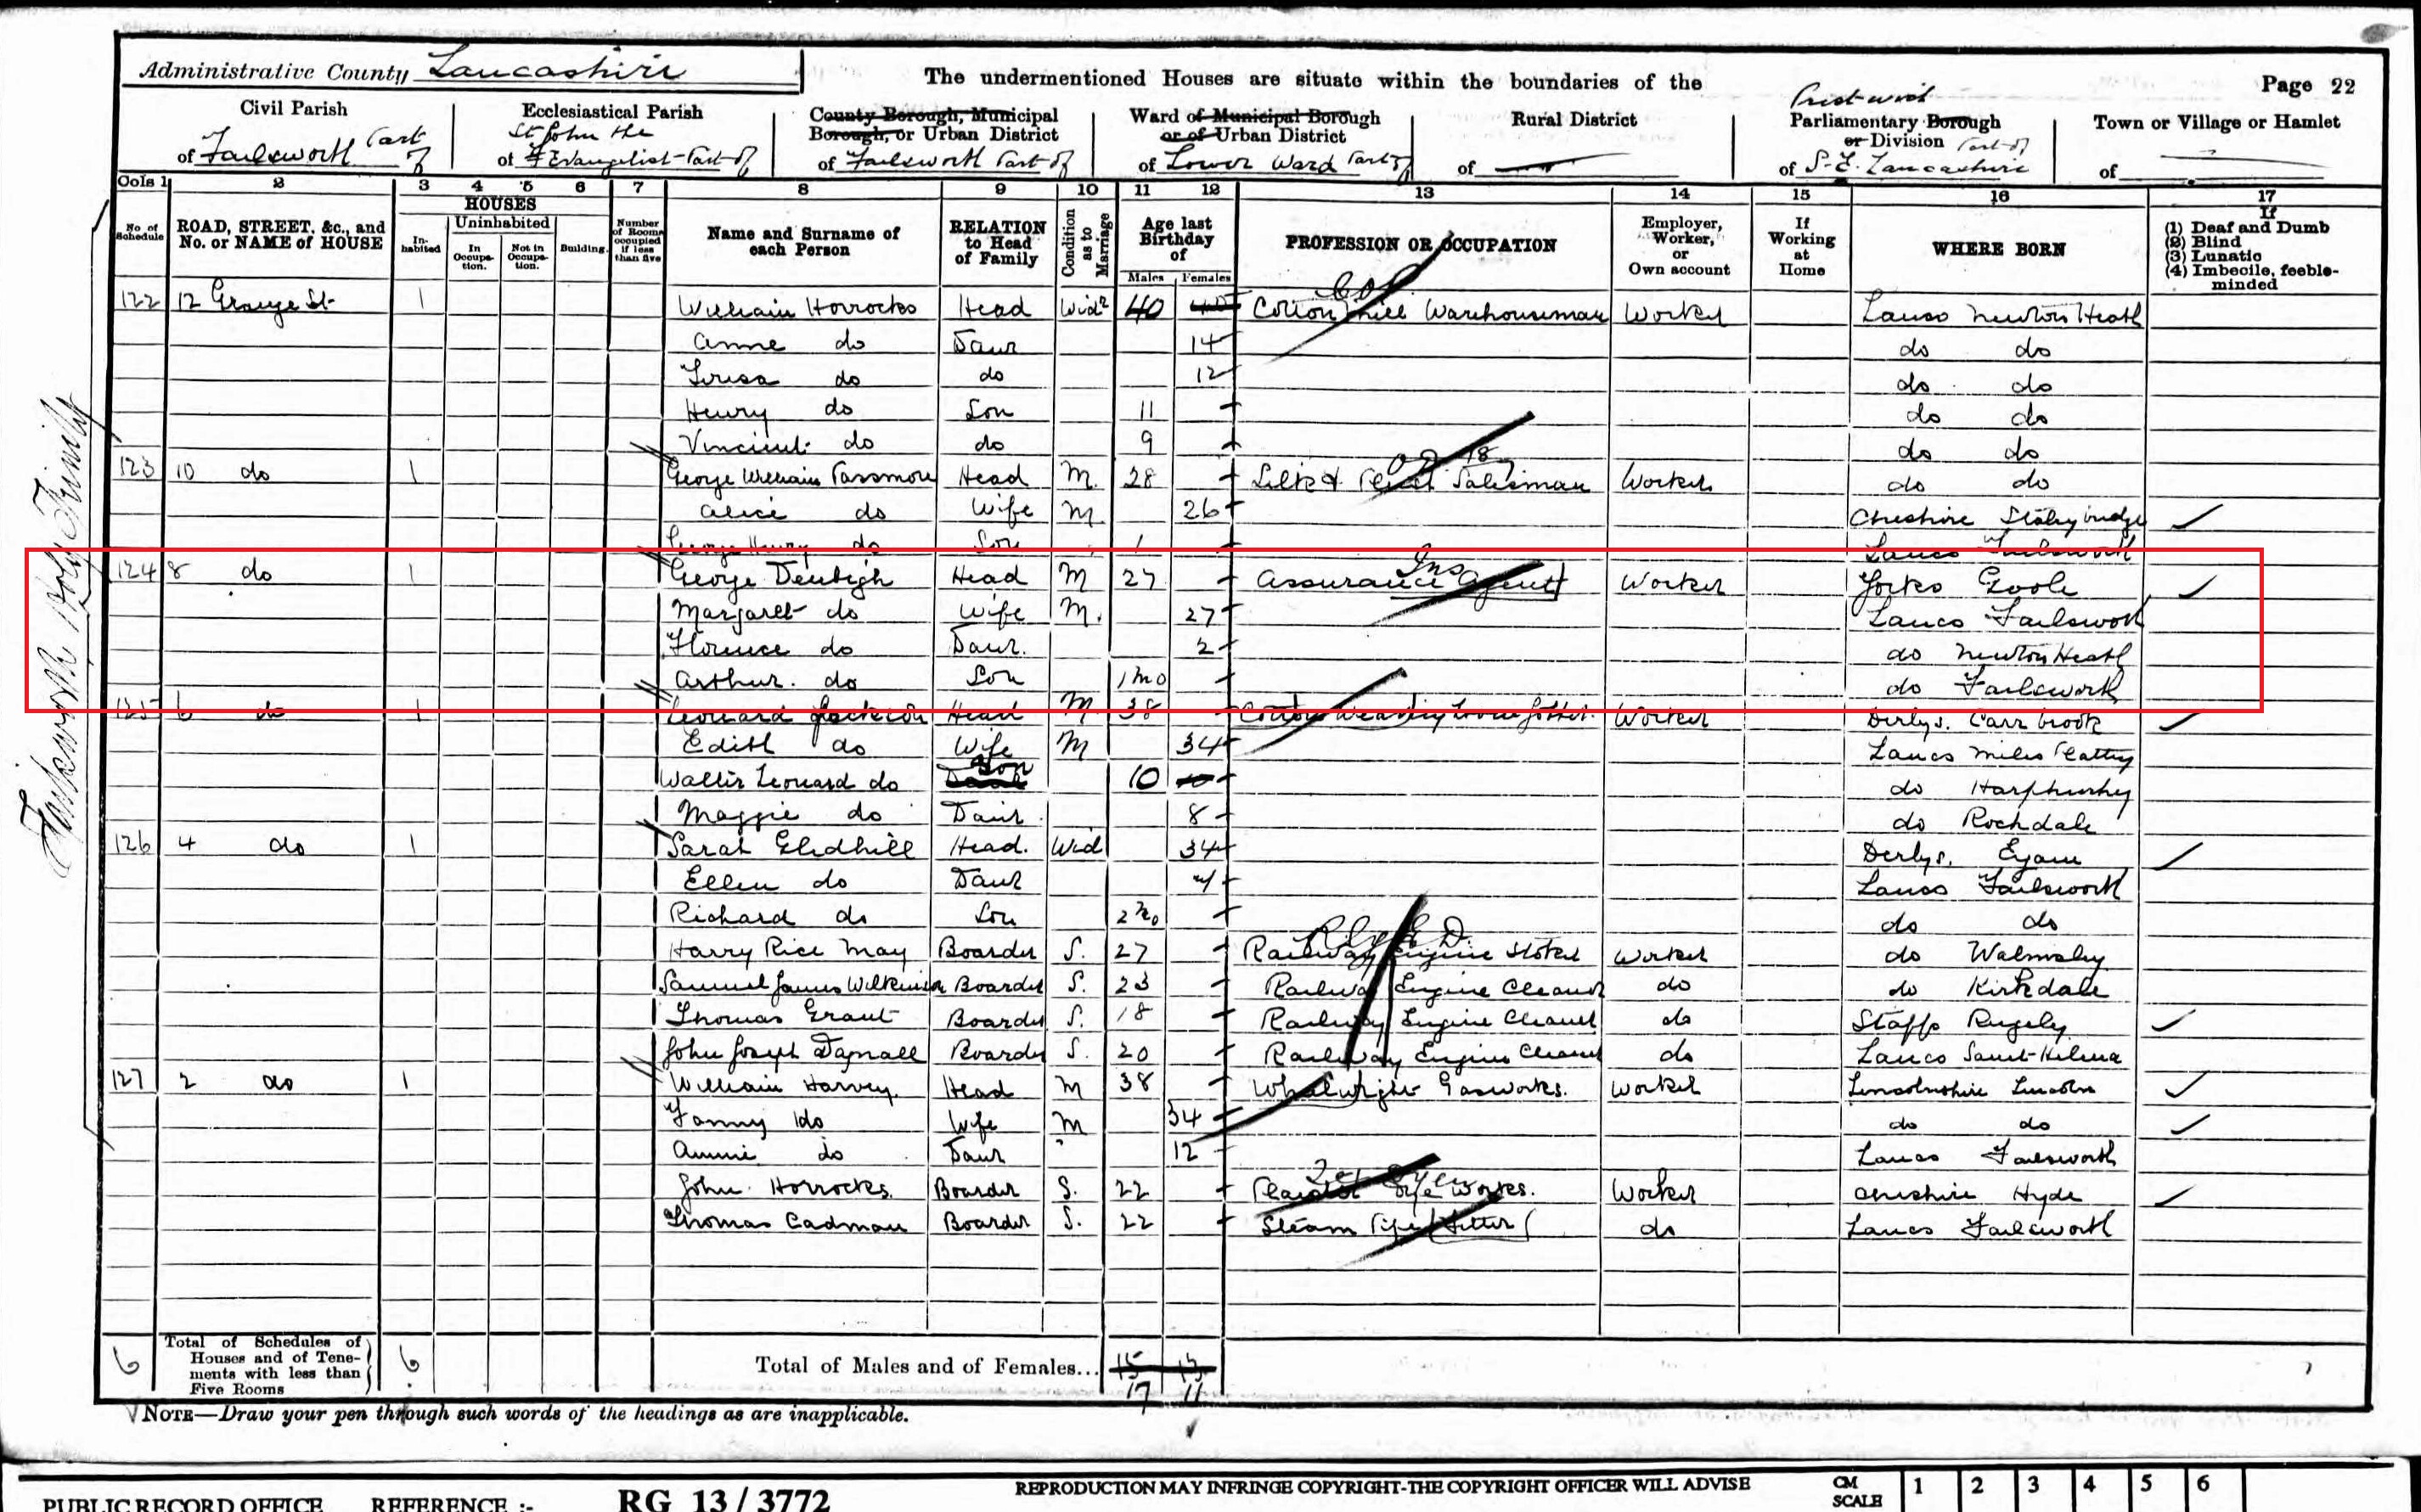 Administrative County Lancashire
The undermentioned Houses are situate within the boundaries of the
Page 22
Civil Parish
of Failsworth Part of
Ecclesiastical Parish
St John the
of Evangelist Part of
County Borough, Municipal
Borough, or Urban District
of Failsworth Part of
Ward of Municipal Borough
or of Urban District
of Lower Ward Part of
Rural District
of
Prestwich
Parliamentary Borough
or Division Part of
of S. E. Lancashire
Town or Village or Hamlet
of
Cols 1 2 3 4 5 6 7 8 9 10 11 12 13 14 15 16 17
No. of Schedule
ROAD, STREET, &c., and No. or NAME of HOUSE
HOUSES
Inhabited
Uninhabited
In Occupation.
Not in Occupation.
Building.
Number of Rooms occupied if less than five
Name and Surname of each Person
RELATION to Head of Family
Condition as to Marriage
Age last Birthday of
Males Females
PROFESSION OR OCCUPATION
Employer, Worker, or Own account
If Working at Home
WHERE BORN
If
(1) Deaf and Dumb
(2) Blind
(3) Lunatic
(4) Imbecile, feeble-minded
122 12 Grange St 1 William Horrocks Head Widr 40 Cotton Mill Warehouseman Worker Lancs Newton Heath
Anne do Daur 14 do do
Louisa do do 12 do do
Henry do Son 11 do do
Vincient do do 9 do do
123 10 do 1 George William Passmore Head M. 28 Silk & Salesman Worker do do
Alice do Wife M 26 Cheshire Stalybridge
George Henry do Son 1 Lancs Failsworth
124 8 do 1 George Denbigh Head M 27 Assurance Agent Ins Worker Yorks Goole
Margaret do Wife M. 27 Lancs Failsworth
Florence do Daur. 2 do Newton Heath
Arthur. do Son 1 mo do Failsworth
125 6 do 1 Leonard Jackson Head M 38 Cotton Weaving Worker Derbys. Carrbrook
Edith do Wife M 34 Lancs Miles Platting
Walter Leonard do Son 10 do Harpurhey
Maggie do Daur 8 do Rochdale
126 4 do 1 Sarah Gledhill Head. Wid 34 Derbys. Eyam
Ellen do Daur 4 Lancs Failsworth
Richard do Son 2 mo do do
Harry Rice May Boarder S. 27 Railway Engine Stoker Worker do Walmsley
Samuel James Wilkinson Boarder S. 23 Railway Engine Cleaner do do Kirkdale
Thomas Grant Boarder S. 18 Railway Engine Cleaner do Staffs Rugeley
John Joseph Dagnall Boarder S. 20 Railway Engine Cleaner do Lancs Saint Helens
127 2 do 1 William Harvey Head M 38 Wheelwright Gasworks. Worker Lincolnshire Lincoln
Fanny do Wife M 34 do do
Annie do Daur 12 Lancs Failsworth
John Horrocks. Boarder S. 22 Dye Works. Worker Cheshire Hyde
Thomas Cadman Boarder S. 22 Steam Pipe Fitter do Lancs Failsworth
6 Total of Schedules of Houses and of Tenements with less than Five Rooms 6 Total of Males and of Females... 15 13
17 11
NOTE—Draw your pen through such words of the headings as are inapplicable.
Failsworth Holy Trinity
PUBLIC RECORD OFFICE REFERENCE :- RG 13 / 3772
REPRODUCTION MAY INFRINGE COPYRIGHT-THE COPYRIGHT OFFICER WILL ADVISE
CM SCALE 1 2 3 4 5 6